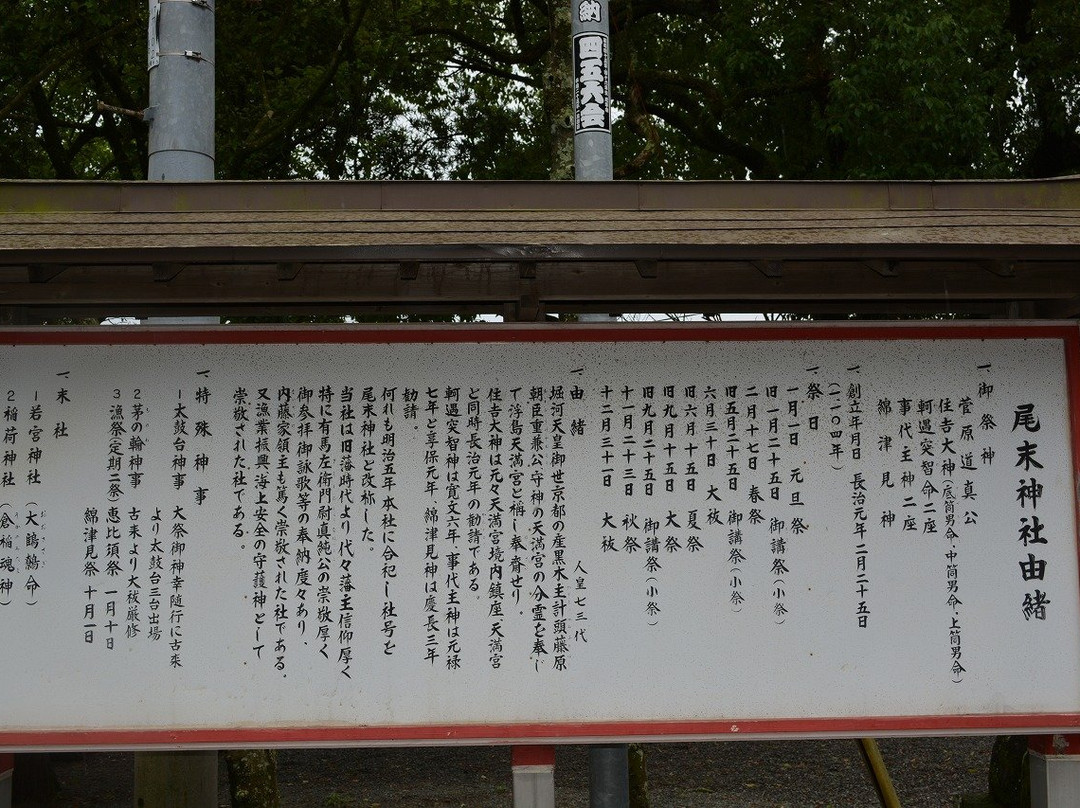 納
四五六会
尾末神社由緒
一、御祭神
菅原道真公
住吉大神(底筒男命・中筒男命・上筒男命)
軻遇突智命二座
事代主神二座
綿津見神
一、創立年月日 長治元年二月二十五日
(一一〇四年)
一、祭日
一月一日 元旦祭
旧一月二十五日 御講祭(小祭)
二月十七日 春祭
旧五月二十五日 御講祭(小祭)
六月三十日 大祓
旧六月十五日 夏祭
旧九月十五日 大祭
旧九月二十五日 御講祭(小祭)
十一月二十三日 秋祭
十二月三十一日 大祓
一、由緒
人皇七三代
堀河天皇御世京都の産黒木主計頭藤原
朝臣重兼公守神の天満宮の分霊を奉じ
て浮島天満宮と称し奉斎せり。
住吉大神は元々天満宮境内鎮座、天満宮
と同時長治元年の勧請である。
軻遇突智神は寛文六年、事代主神は元禄
七年と享保元年 綿津見神は慶長三年
勧請。
何れも明治五年本社に合祀し社号を
尾末神社と改称した。
当社は旧藩時代より代々藩主信仰厚く
特に有馬左衛門尉真純公の崇敬厚く
御参拝御詠歌等の奉納度々あり、
内藤家領主も篤く崇敬された社である。
又漁業振興、海上安全の守護神として
崇敬された社である。
一、特殊神事
1 太鼓台神事 大祭御神幸随行に古来
より太鼓台三台出場
2 茅の輪神事 古来より大祓厳修
3 漁祭(定期二祭)恵比須祭 一月十日
綿津見祭 十月一日
一、末社
1 若宮神社 (大鷦鷯命)
2 稲荷神社 (倉稲魂神)